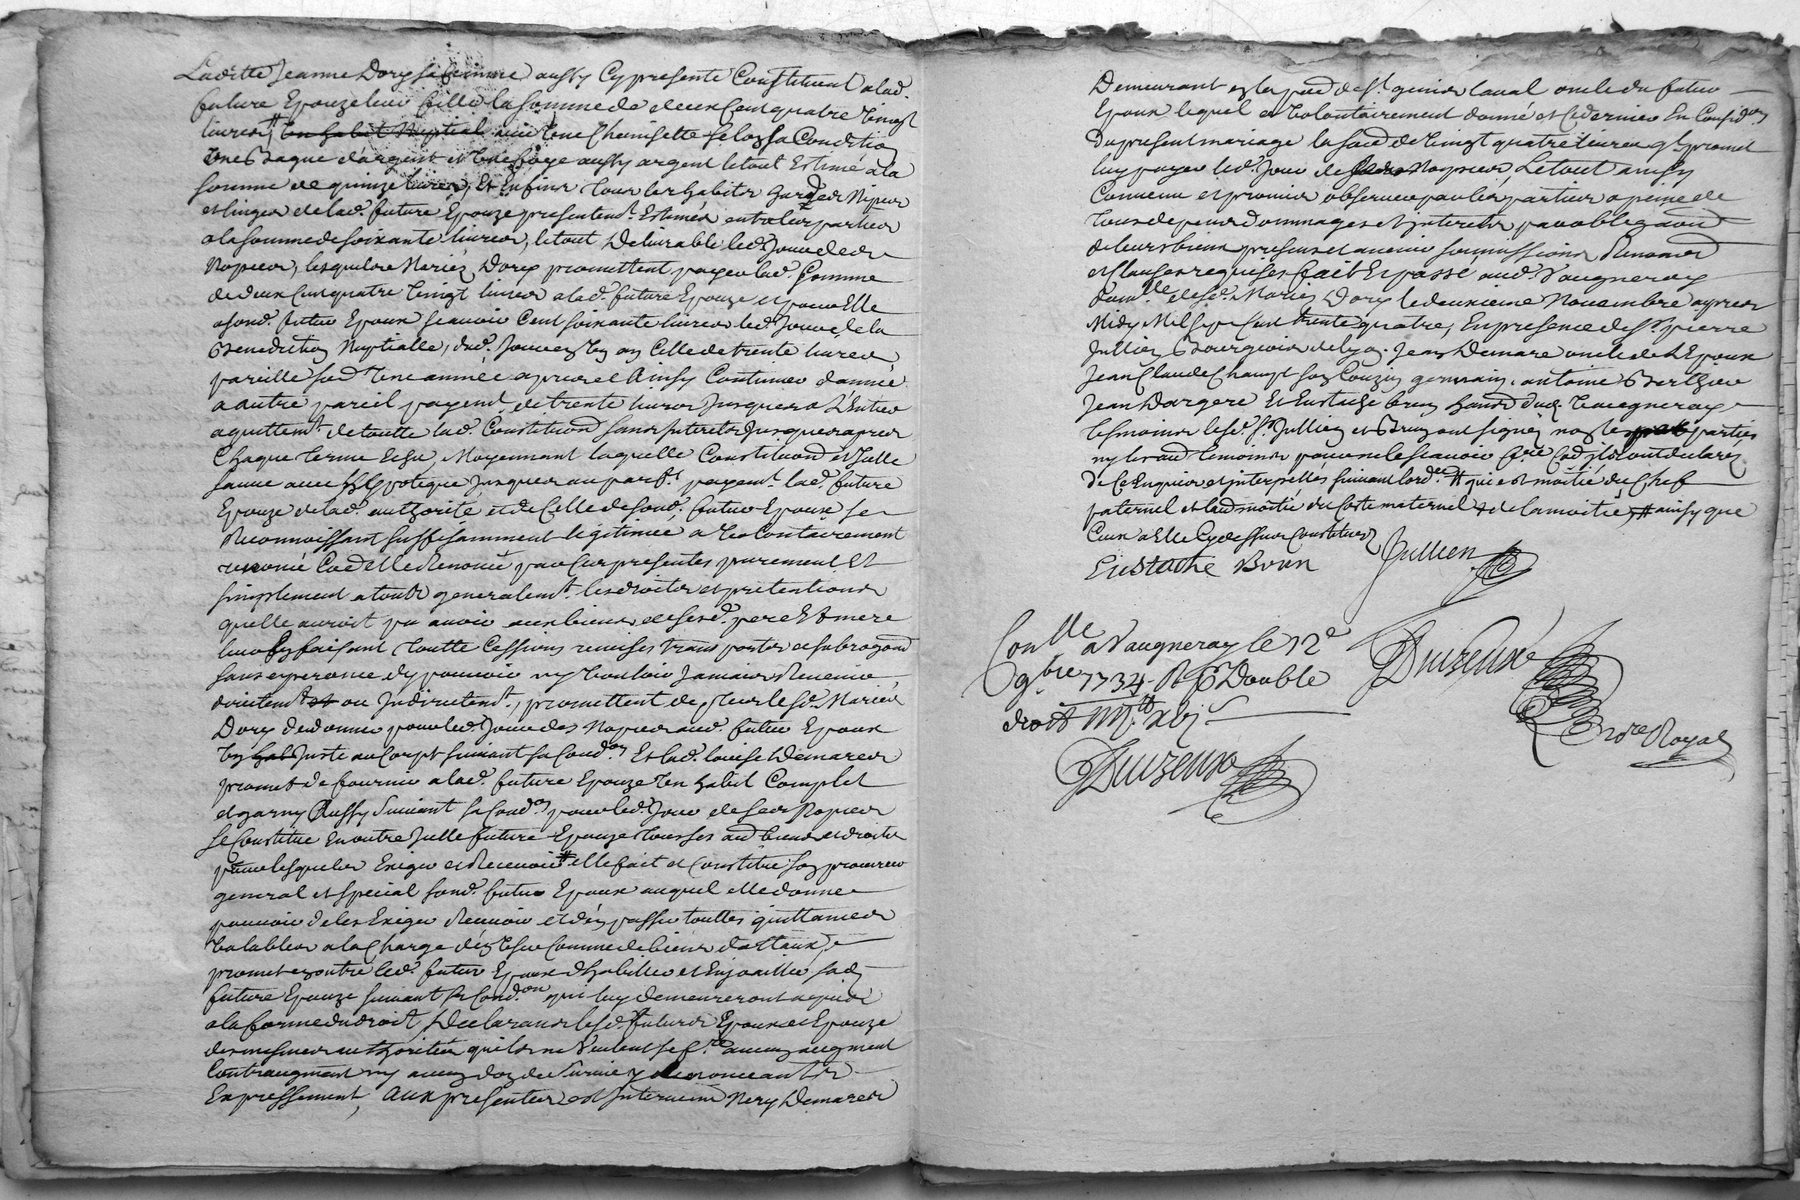 Laditte Jeanne Dory sa femme aussy Cy presente Constituent a lad.
future Epouze leur fille la somme de deux Cent quatre Vingt
livres, un habit Nuptial une Chemisette selon sa Condition
Une Bague d'argent et aussy argent le tout Estimé a la
somme de quinze livres, Et Enfin tous les habits hardes Nipes
et linges de lad. future Epouze presentemt. Estimés entre les parties
a la somme de soixante livres, le tout Delivrable led. Jour de
Nopces, lesquels Mariés Dory promettent payer lad. somme
de deux Cent quatre Vingt livres a lad. future Epouze et pour Elle
a sond. futur Epoux scavoir Cent soixante livres led. Jour de la
Benediction Nuptialle, dud. Jour en Un an Celle de trente livres
pareille somme Une année apres et Ainsy Continuer d'année
a autre pareil payemt. de trente livres Jusques a L'Entier
aquittemt. de toutte lad. Constitution sans Interets Jusques apres
Chaque terme Echu, Moyennant laquelle Constitution Icelle
sauve avec hypoteque Jusques au parft. payemt. lad. future
Epouze de lad. authorité et de Celle de sond. futur Epoux se
Reconnoissant suffisamment legitimée a Volontairement
renoncé Comme Elle Renonce par Ces presentes purement Et
simplement a touts generalemt. les droits et pretentions
quelle auroit pu avoir aux biens de sesd. pere Et mere
leur En faisant toutte Cessions remises transports et subrogaon
sans esperance d'y pouvoir ny Vouloir Jamais Revenir
directemt. ou Indirectemt., promettent de plus lesd. Mariés
Dory de donner pour led. Jour des Nopces aud. futur Epoux
Un Juste au Corps suivant sa Condon. Et lad. louise Demares
promet de fournir a lad. future Epouze Un habit Complet
et garny Aussy Suivant sa Condon. pour led. Jour de ses Nopces
se Constitue En outre Icelle future Epouze tous ses biens et droits
pour lesquels Exiger et Recevoir elle fait et Constitue son procureur
general et special sond. futur Epoux auquel elle donne
pouvoir de les Exiger Recevoir et d'en passer touttes quittances
Valables a la Charge d'en Comme de biens dotaux,
promet en outre led. futur Epoux d'habiller et Enjoailler sad.
future Epouze suivant sa Condon. qui luy demeureront acquis
a la forme du droit, Declarans lesd. futurs Epoux et Epouze
des mesmes authorités qu'ils ne Veulent se fre. aucun augment
Contraugment ny aucun don de Survie y renonceants
Expressement, Aux presentes est Intervenu Nery Demares
Demeurant en la psse. de St. genis laval oncle du futur
Epoux lequel a Volontairement donné et En Considon.
du present mariage la somme de Vingt quatre livres qu'il promet
luy payer led. Jour de Nopces, Le tout ainsy
Convenu et promis observer par les parties a peine de
tous depens dommages et interets par obligaon
de leurs biens presens et avenir soumissions Renonçaon
et Clauses requises fait Et passé aud. Vaugneray
dom.lle desd. Mariés Dory le deuxieme Novembre apres
Midy Mil sept Cent trente quatre, En presence de Sr. pierre
Jullien Bourgeois de Lyon. Jean Demare oncle de L'Epoux
Jean Claude Champt son Cousin germain. antoine Berthier
Jean Dargere Et Eustache brun habit. dud. Vaugneray
tesmoins lesd. Sr. Jullien et Brun ont signé non les parties
ny les autres temoins pour ne le scavoir fre. Comme ils ont declaré
de Ce Enquis et interpellés suivant lord.ce # qui est moitié du Chef
paternel et lautre moitié du Costé maternel & de la moitié, # ainsy que
Ceux a Elle Cy dessus Constitués
Eustache Brun Jullien
Con.lle a Vaugneray le 12e
9bre 1734. R 6 Double
droits
Duizeux
Duizeux
Nore Royal